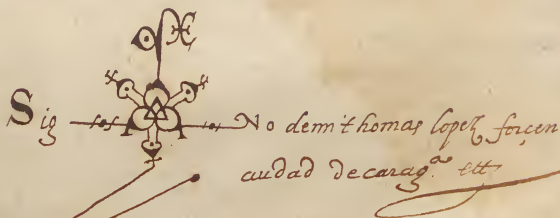 Sig No demi thomas lopez forçen
ciudad decarag.ª ett